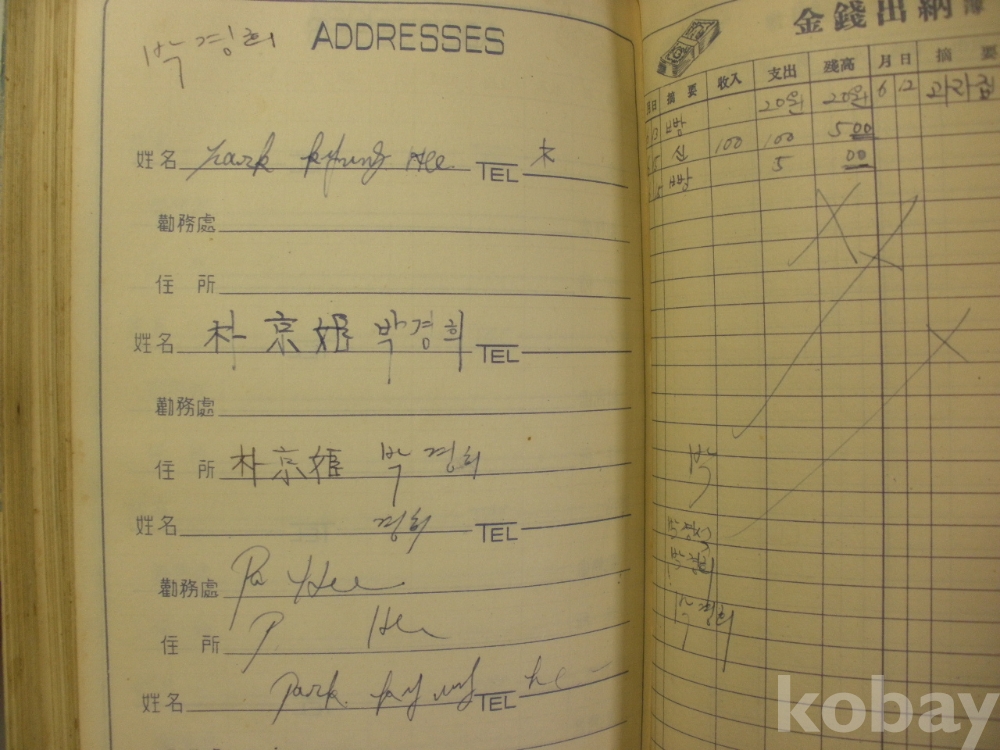 박경희 ADDRESSES
姓名 Park Kyung Hee TEL
勤務處
住 所
姓名 朴京姬 박경희 TEL
勤務處
住 所 朴京姬 박경희
姓名 경희 TEL
勤務處 Pa Hee
住 所 P Hee
姓名 Park Kyung TEL
金錢出納
摘 要 收入 支出 残高 月 日 摘 要
20원 20원 6 12
100 100 500
5 00
박
박경희
kobay